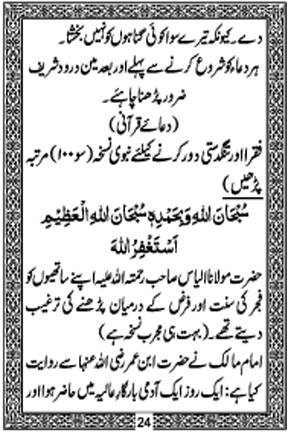 دے۔ کیونکہ تیرے سوا کوئی گناہوں کو نہیں بخشتا۔
ہر دعاء کو شروع کرنے سے پہلے اور بعد میں درود شریف
ضرور پڑھنا چاہئے۔
(دعائے قرآنی)
فقر اور تنگدستی دور کرنے کیلئے نبوی نسخہ (سو ۱۰۰ مرتبہ
پڑھیں)
سُبْحَانَ اللهِ وَبِحَمْدِهٖ سُبْحَانَ اللهِ الْعَظِيْمِ
اَسْتَغْفِرُ اللهَ
حضرت مولانا الیاس صاحب رحمتہ اللہ علیہ اپنے ساتھیوں کو
فجر کی سنت اور فرض کے درمیان پڑھنے کی ترغیب
دیتے تھے۔ (بہت ہی مجرب نسخہ ہے)
امام مالک نے حضرت ابن عمر رضی اللہ عنہا سے روایت
کیا ہے: ایک روز ایک آدمی بارگاہِ عالیہ میں حاضر ہوا اور
24